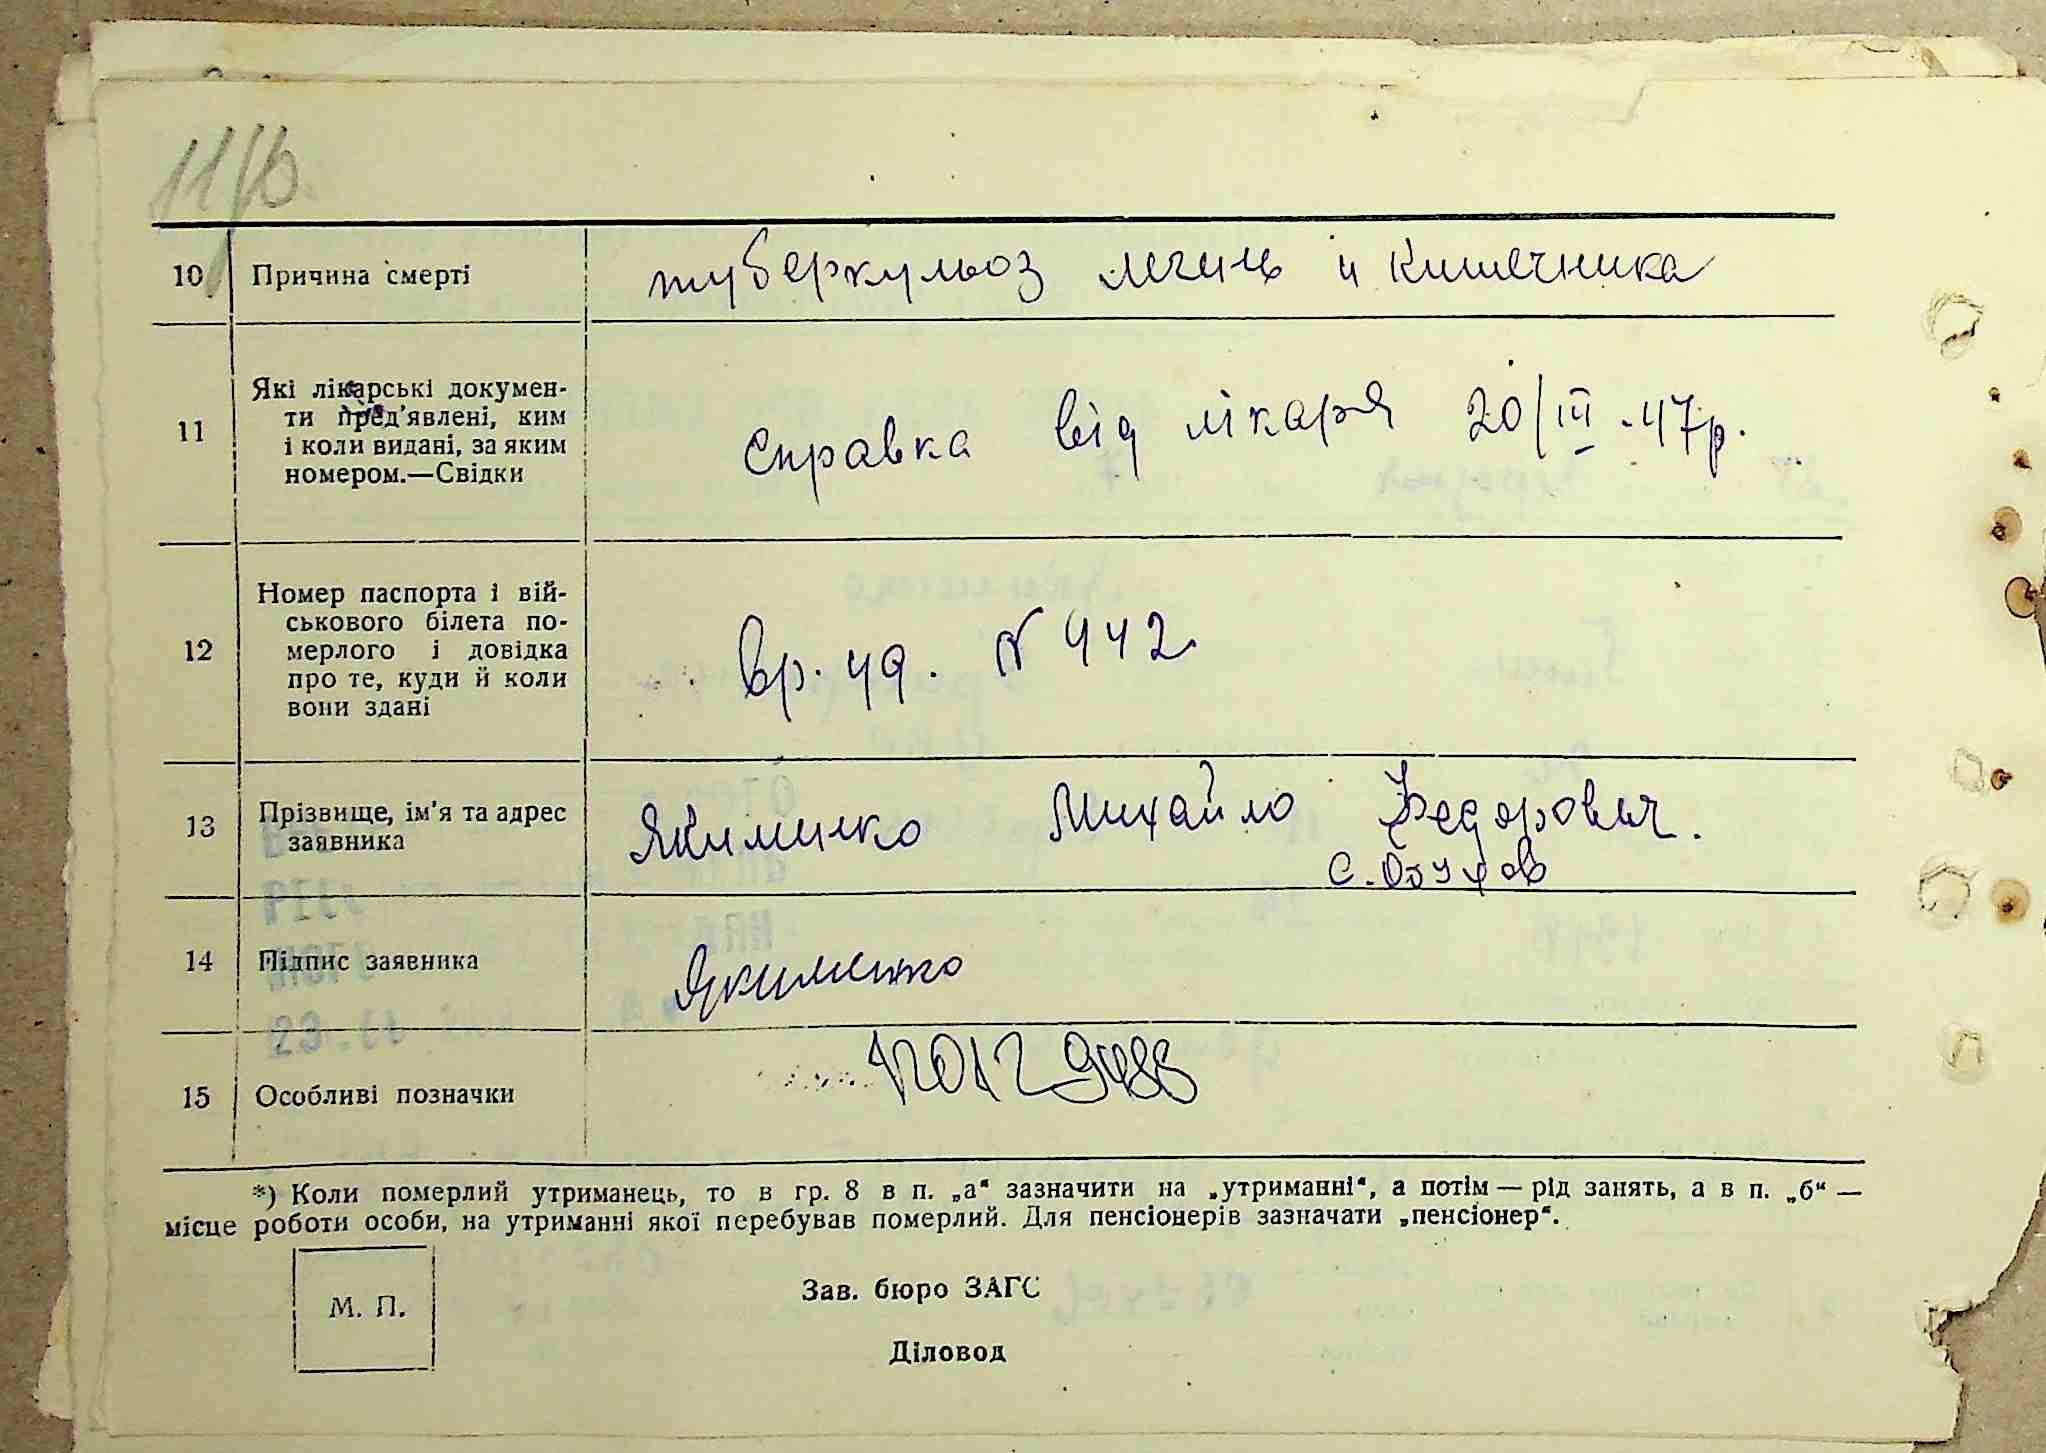 10 Причина смерті туберкульоз легень и кишечника
11 Які лікарські докумен-
ти пред'явлені, ким
і коли видані, за яким
номером.—Свідки
справка від лікаря 20/III.47р.
12 Номер паспорта і вій-
ськового білета по-
мерлого і довідка
про те, куди й коли
вони здані
Вр. уд. N 442
13 Прізвище, ім'я та адрес
заявника
Якименко Михайло Федорович.
с. Обухов
14 Підпис заявника Якименко
15 Особливі позначки
*) Коли померлий утриманець, то в гр. 8 в п. „а“ зазначити на „утриманні“, а потім — рід занять, а в п. „б“ —
місце роботи особи, на утриманні якої перебував померлий. Для пенсіонерів зазначати „пенсіонер“.
М. П.
Зав. бюро ЗАГС
Діловод